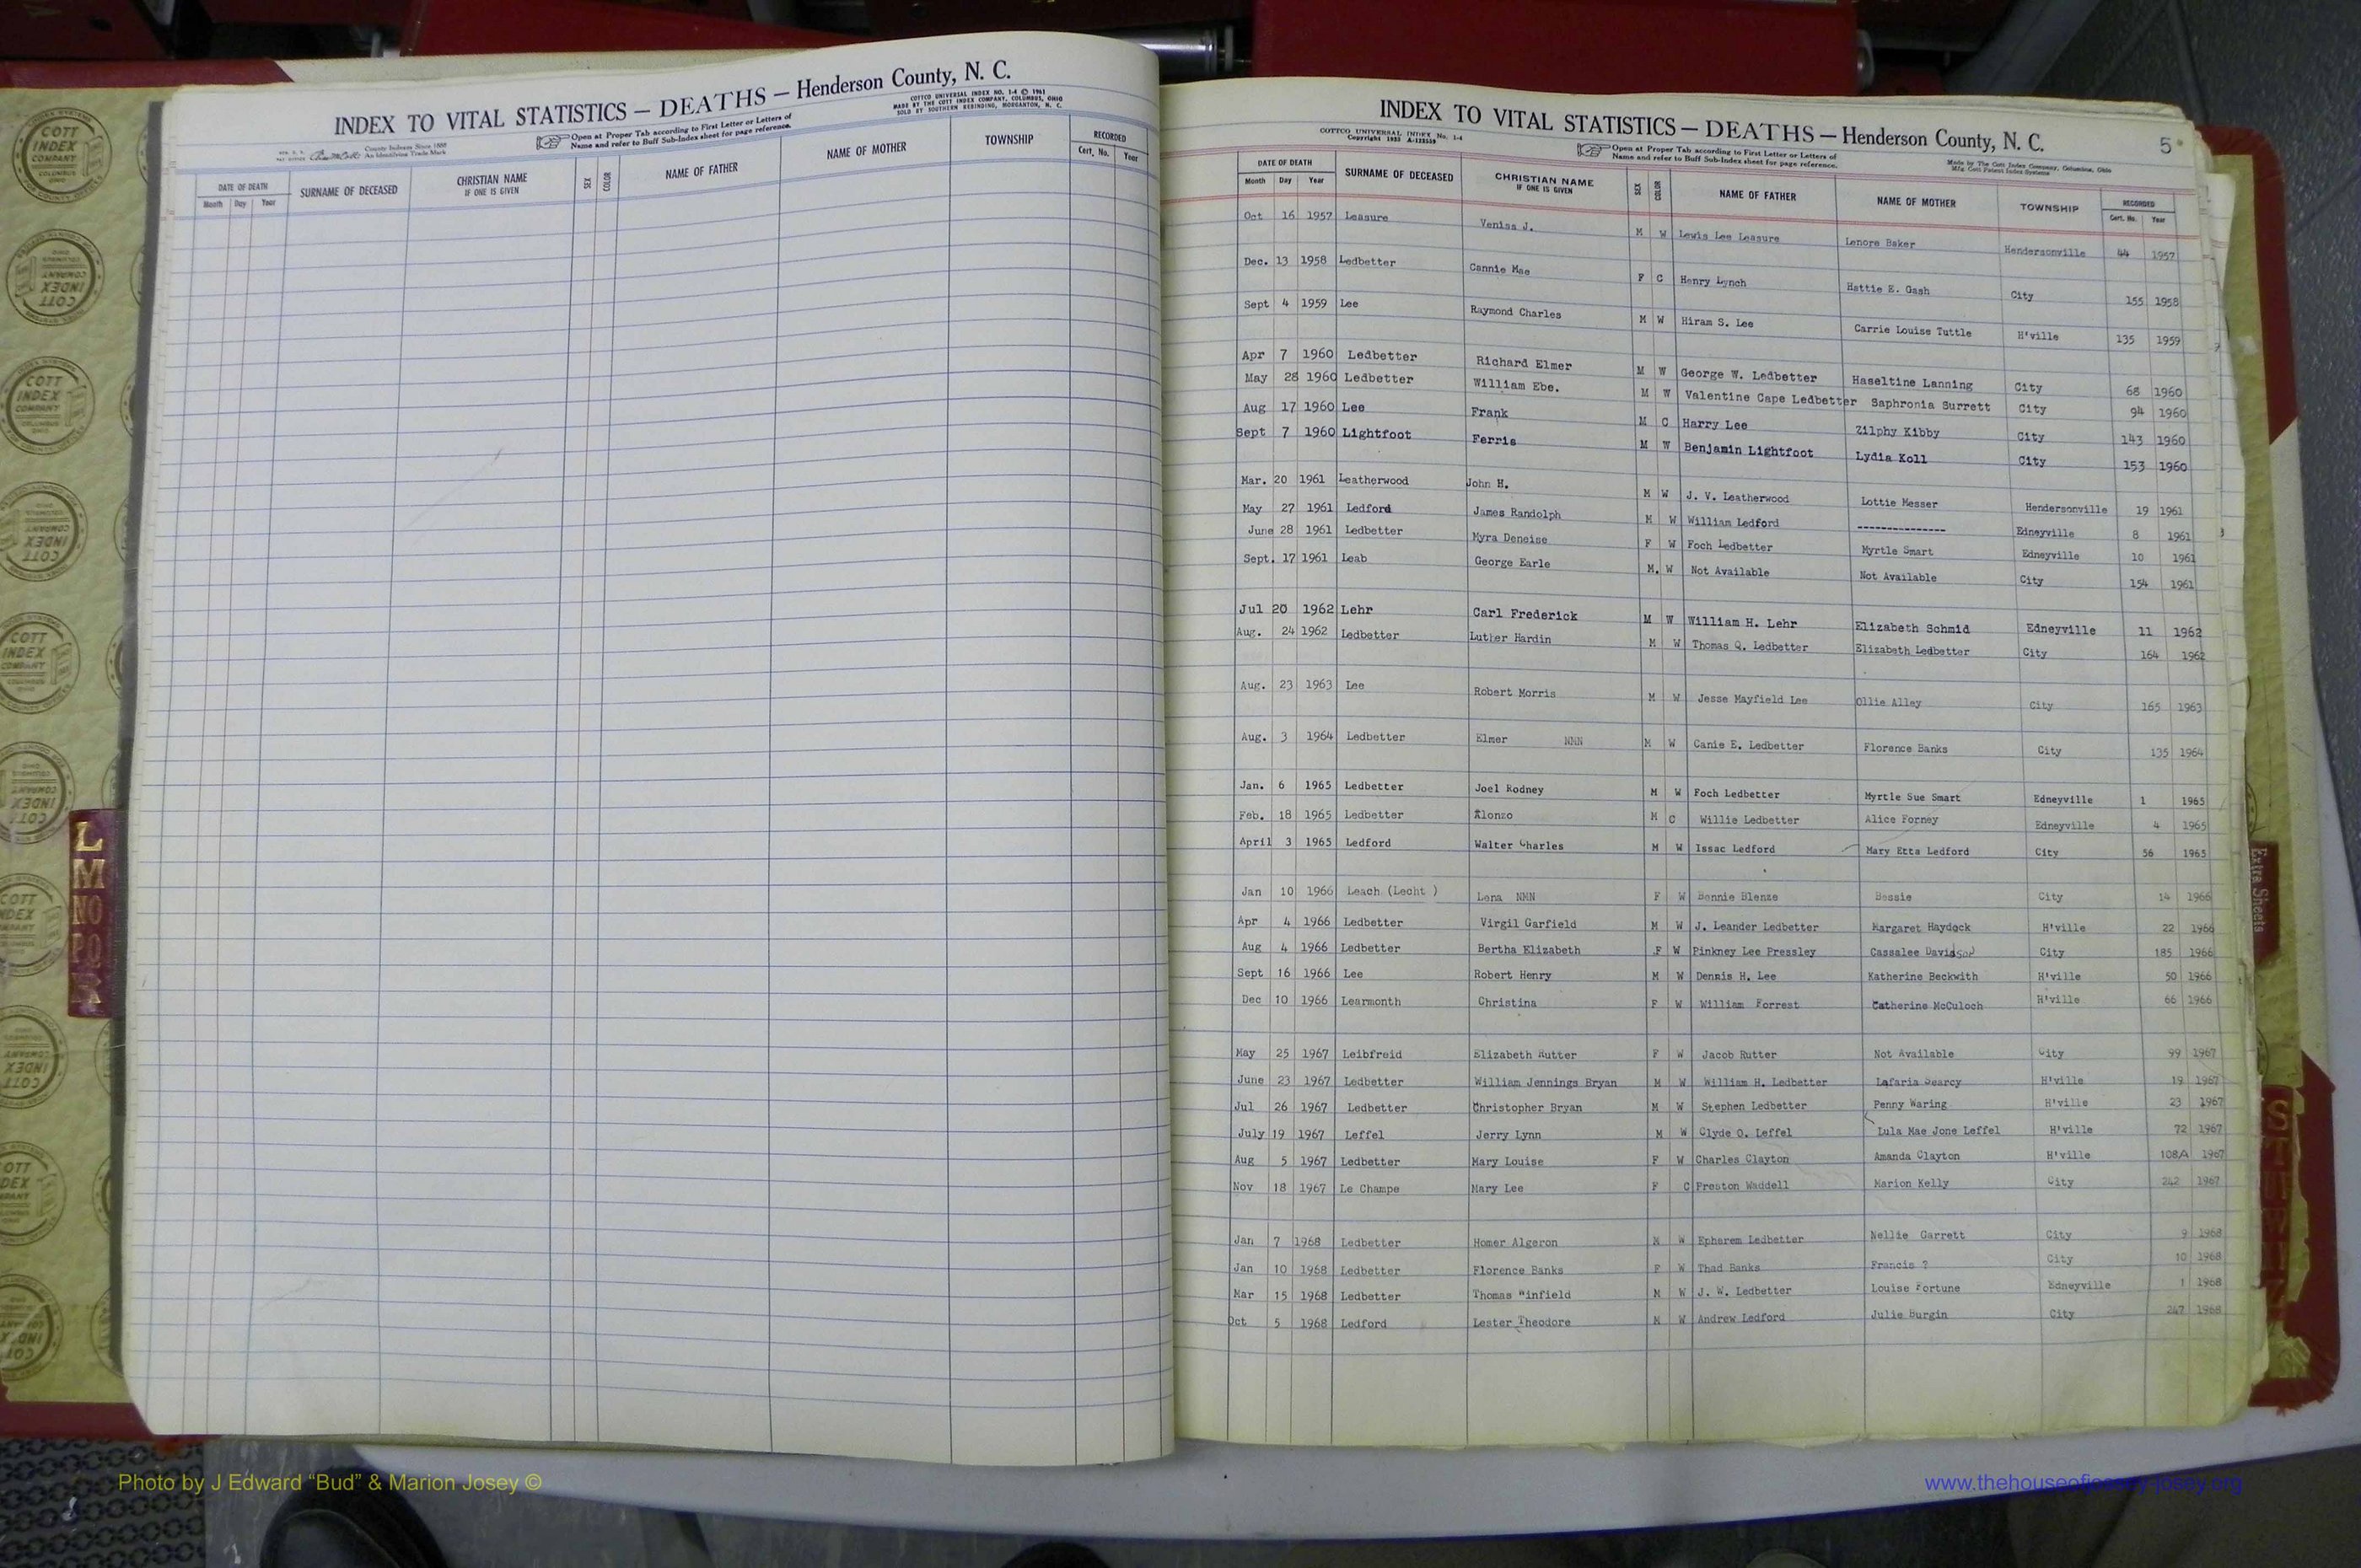 INDEX TO VITAL STATISTICS — DEATHS — Henderson County, N. C.
COTTCO UNIVERSAL INDEX NO. 1-4 © 1961
MADE BY THE COTT INDEX COMPANY, COLUMBUS, OHIO
SOLD BY SOUTHERN REBINDING, MORGANTON, N. C.
Open at Proper Tab according to First Letter or Letters of
Name and refer to Buff Sub-Index sheet for page reference.
County Indexes Since 1888
An Identifying Trade Mark
DATE OF DEATH SURNAME OF DECEASED CHRISTIAN NAME IF ONE IS GIVEN SEX COLOR NAME OF FATHER NAME OF MOTHER TOWNSHIP RECORDED
Month Day Year Cert. No. Year
INDEX TO VITAL STATISTICS — DEATHS — Henderson County, N. C. 5
COTTCO UNIVERSAL INDEX No. 1-4
Open at Proper Tab according to First Letter or Letters of
Name and refer to Buff Sub-Index sheet for page reference.
Made by The Cott Index Company, Columbus, Ohio
DATE OF DEATH SURNAME OF DECEASED CHRISTIAN NAME IF ONE IS GIVEN SEX COLOR NAME OF FATHER NAME OF MOTHER TOWNSHIP RECORDED
Month Day Year Cert. No. Year
Oct 16 1957 Leasure Veniss J. M W Lewis Lee Leasure Lenore Baker Hendersonville 44 1957
Dec. 13 1958 Ledbetter Cannie Mae F C Henry Lynch Hattie E. Gash City 155 1958
Sept 4 1959 Lee Raymond Charles M W Hiram S. Lee Carrie Louise Tuttle H'ville 135 1959
Apr 7 1960 Ledbetter Richard Elmer M W George W. Ledbetter Haseltine Lanning City 68 1960
May 28 1960 Ledbetter William Ebe. M W Valentine Cape Ledbetter Saphronia Surrett City 94 1960
Aug 17 1960 Lee Frank M C Harry Lee Zilphy Kibby City 143 1960
Sept 7 1960 Lightfoot Ferris M W Benjamin Lightfoot Lydia Koll City 153 1960
Mar. 20 1961 Leatherwood John H. M W J. V. Leatherwood Lottie Messer Hendersonville 19 1961
May 27 1961 Ledford James Randolph M W William Ledford --------------- Edneyville 8 1961
June 28 1961 Ledbetter Myra Deneise F W Foch Ledbetter Myrtle Smart Edneyville 10 1961
Sept. 17 1961 Leab George Earle M. W Not Available Not Available City 154 1961
Jul 20 1962 Lehr Carl Frederick M W William H. Lehr Elizabeth Schmid Edneyville 11 1962
Aug. 24 1962 Ledbetter Luther Hardin M W Thomas Q. Ledbetter Elizabeth Ledbetter City 164 1962
Aug. 23 1963 Lee Robert Morris M W Jesse Mayfield Lee Ollie Alley City 165 1963
Aug. 3 1964 Ledbetter Elmer NMN M W Canie E. Ledbetter Florence Banks City 135 1964
Jan. 6 1965 Ledbetter Joel Rodney M W Foch Ledbetter Myrtle Sue Smart Edneyville 1 1965
Feb. 18 1965 Ledbetter Alonzo M C Willie Ledbetter Alice Forney Edneyville 4 1965
April 3 1965 Ledford Walter Charles M W Issac Ledford Mary Etta Ledford City 56 1965
Jan 10 1966 Leach (Lecht ) Lena NMN F W Bennie Blenze Bessie City 14 1966
Apr 4 1966 Ledbetter Virgil Garfield M W J. Leander Ledbetter Margaret Haydock H'ville 22 1966
Aug 4 1966 Ledbetter Bertha Elizabeth F W Pinkney Lee Pressley Cassalee Davidson City 185 1966
Sept 16 1966 Lee Robert Henry M W Dennis H. Lee Katherine Beckwith H'ville 50 1966
Dec 10 1966 Learmonth Christina F W William Forrest Catherine McCuloch H'ville 66 1966
May 25 1967 Leibfreid Elizabeth Rutter F W Jacob Rutter Not Available City 99 1967
June 23 1967 Ledbetter William Jennings Bryan M W William H. Ledbetter Lafaria Searcy H'ville 19 1967
Jul 26 1967 Ledbetter Christopher Bryan M W Stephen Ledbetter Penny Waring H'ville 23 1967
July 19 1967 Leffel Jerry Lynn M W Clyde O. Leffel Lula Mae Jone Leffel H'ville 72 1967
Aug 5 1967 Ledbetter Mary Louise F W Charles Clayton Amanda Clayton H'ville 108A 1967
Nov 18 1967 Le Champe Mary Lee F C Preston Waddell Marion Kelly City 242 1967
Jan 7 1968 Ledbetter Homer Algeron M W Epharem Ledbetter Nellie Garrett City 9 1968
Jan 10 1968 Ledbetter Florence Banks F W Thad Banks Francis ? City 10 1968
Mar 15 1968 Ledbetter Thomas Winfield M W J. W. Ledbetter Louise Fortune Edneyville 1 1968
Oct 5 1968 Ledford Lester Theodore M W Andrew Ledford Julie Burgin City 247 1968
L
M
NO
PQ
R
Extra Sheets
COTT INDEX COMPANY COLUMBUS OHIO
Photo by J Edward “Bud” & Marion Josey ©
www.thehouseofjossey-josey.org